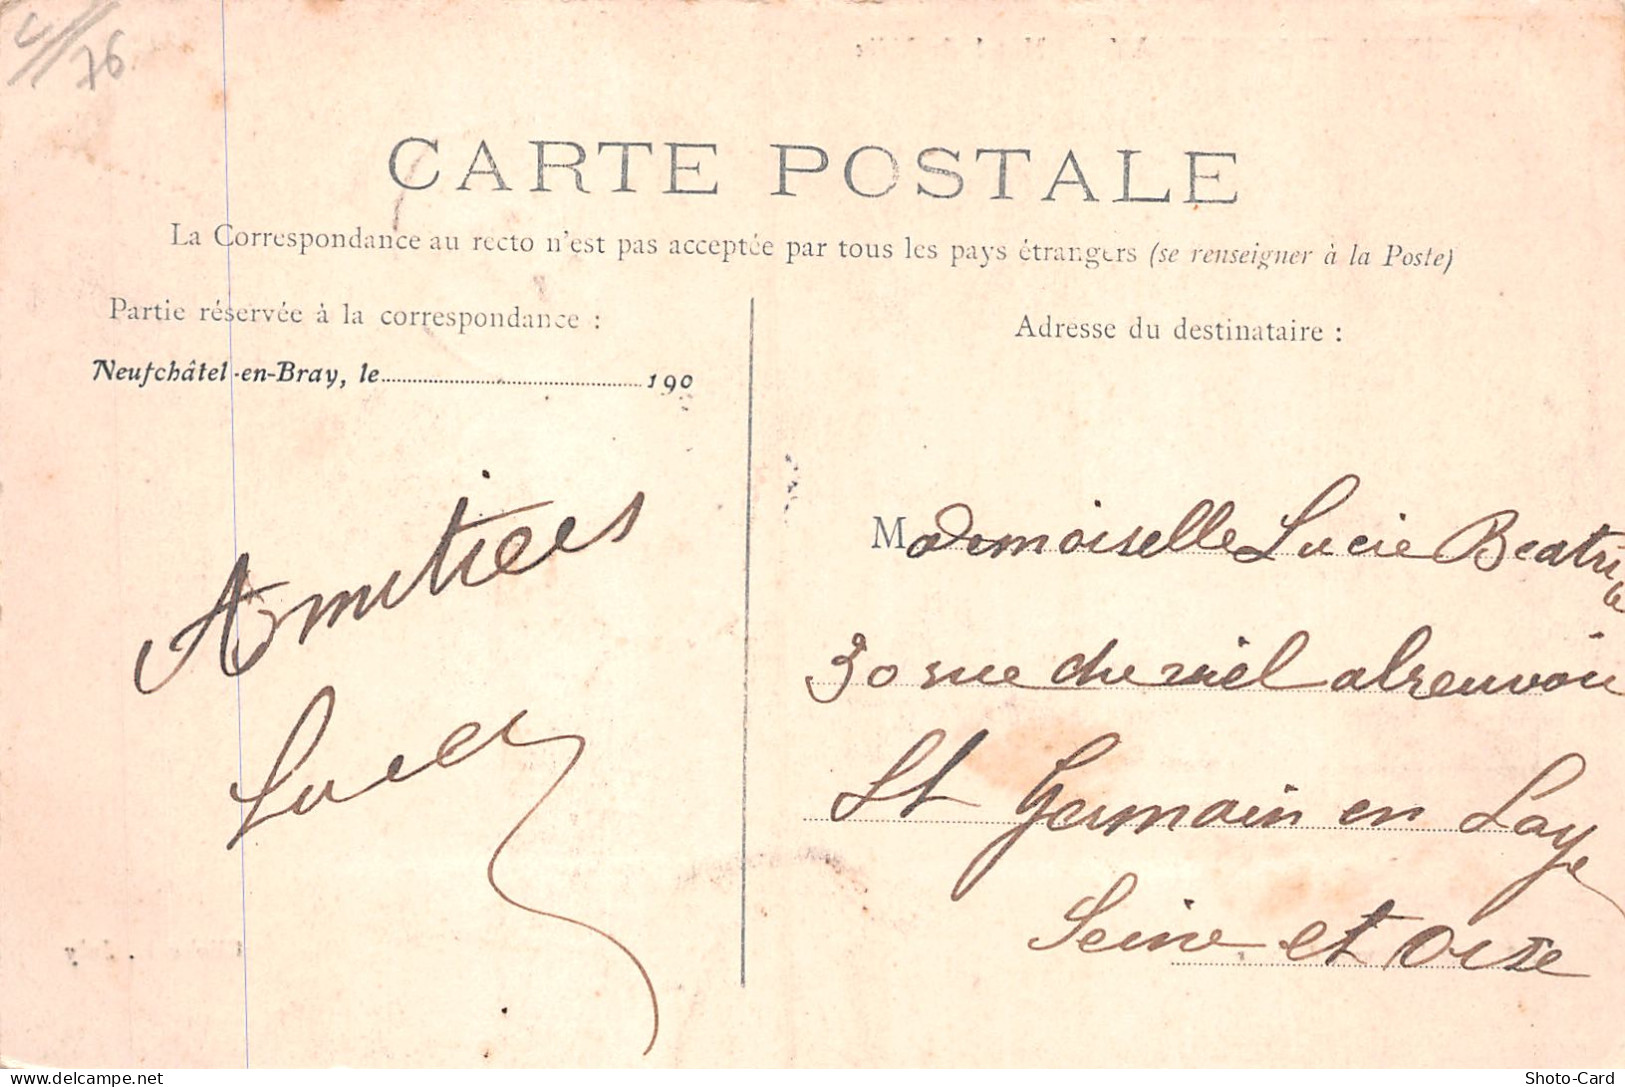 76
CARTE POSTALE
La Correspondance au recto n'est pas acceptée par tous les pays étrangers (se renseigner à la Poste)
Partie réservée à la correspondance :
Neufchâtel-en-Bray, le 190
Amitiees
Adresse du destinataire :
Mademoiselle Lucie Beatrix
30 rue du viel abreuvoir
St Germain en Laye
Seine et Oise
delcampe.net
Shoto-Card